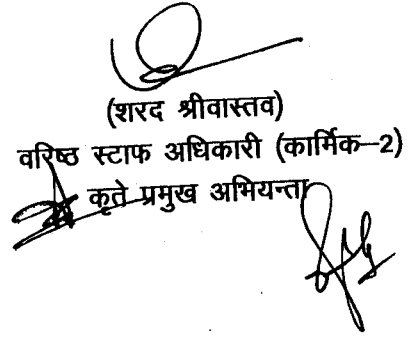 (शरद श्रीवास्तव)
वरिष्ठ स्टाफ अधिकारी (कार्मिक–2)
कृते प्रमुख अभियन्ता